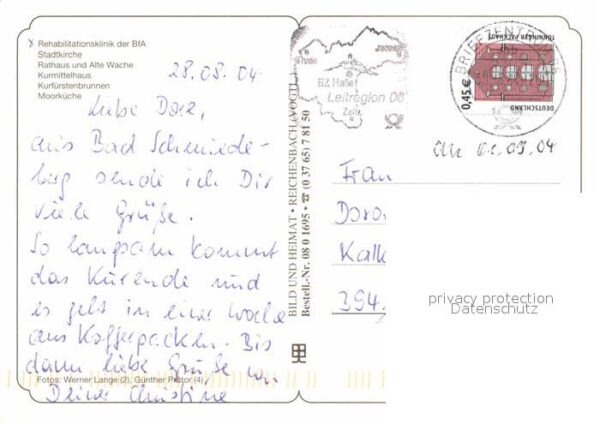 x Rehabilitationsklinik der BfA
Stadtkirche
Rathaus und Alte Wache
Kurmittelhaus
Kurfürstenbrunnen
Moorküche
28.08.04
Liebe Dore,
aus Bad Schmiede-
berg sende ich Dir
viele Grüße.
So langsam kommt
das Kurende und
es geht in einer Woche
ans Kofferpacken. Bis
dann liebe Grüße von
Deiner Christine
Fotos: Werner Lange (2), Günther Pfätor (4),
BILD UND HEIMAT • REICHENBACH (VOGTL.)
Bestell.-Nr. 08 0 1695 • ☎ (0 37 65) 7 81 50
BZ Halle
Leitregion 06
Zeitz
BRIEFZENTRUM
TÖNNINGEN PACKHAUS
0,45 €
DEUTSCHLAND
an 01.09.04
Frau
Doro
Kalk
394
privacy protection
Datenschutz